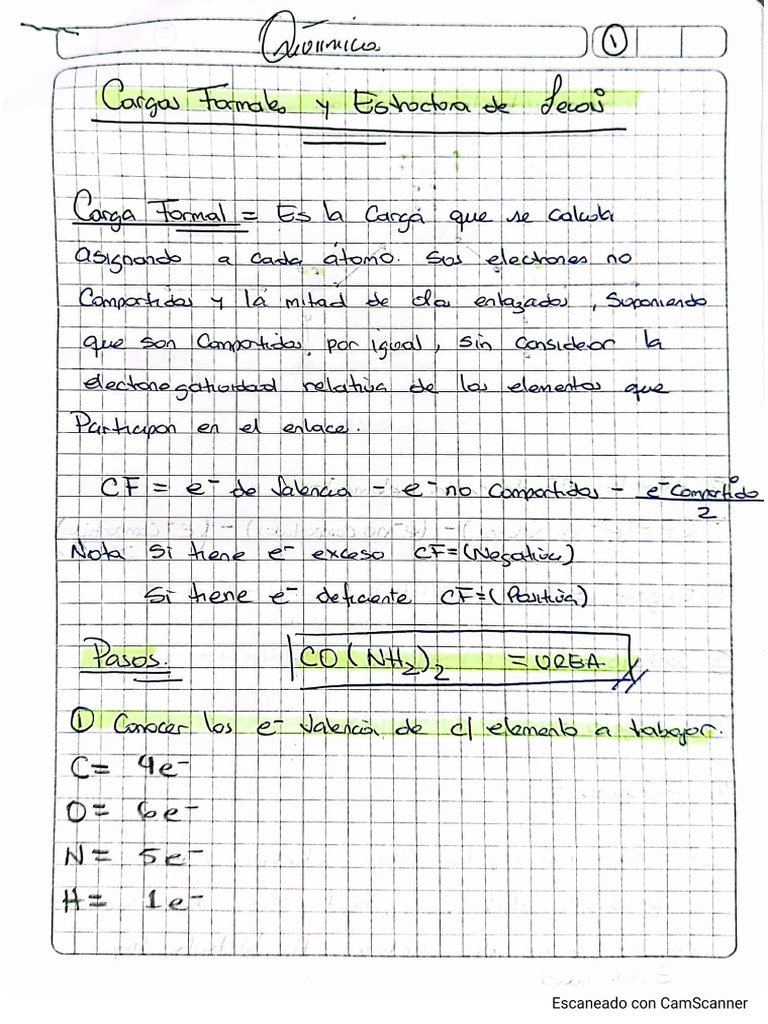 Química
1
Cargas Formales y Estructura de Lewis
Carga Formal = Es la Carga que se calcula
asignando a cada átomo. Sus electrones no
Compartidos y la mitad de los enlazados, Suponiendo
que son Compartidos, por igual, sin considerar la
electronegatividad relativa de los elementos que
Participan en el enlace.
CF = e⁻ de Valencia - e⁻ no Compartidos - e⁻ Compartido / 2
Nota Si tiene e⁻ exceso CF=(Negativa)
Si tiene e⁻ deficiente CF=(Positiva)
Pasos. CO(NH₂)₂ = UREA.
① Conocer los e⁻ Valencia de c/ elemento a trabajar.
C= 4e⁻
O= 6e⁻
N= 5e⁻
H= 1e⁻
Escaneado con CamScanner